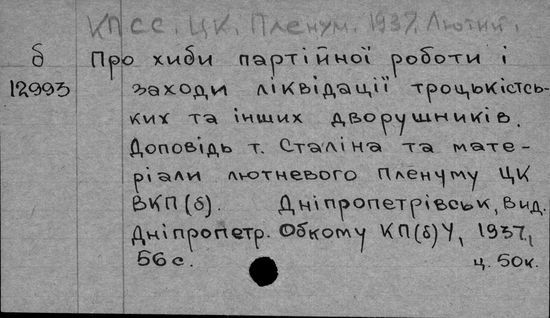 КПСС. ЦК. Пленум. 1937. Лютий.
б Про хиби партійної роботи і
12993 заходи ліквідації троцькістсь-
ких та інших дворушників.
Доповідь т. Сталіна та мате-
ріали лютневого Пленуму ЦК
ВКП(б). Дніпропетрівськ, Вид.
Дніпропетр. Обкому КП(б)У, 1937,
56 с. ц. 50к.